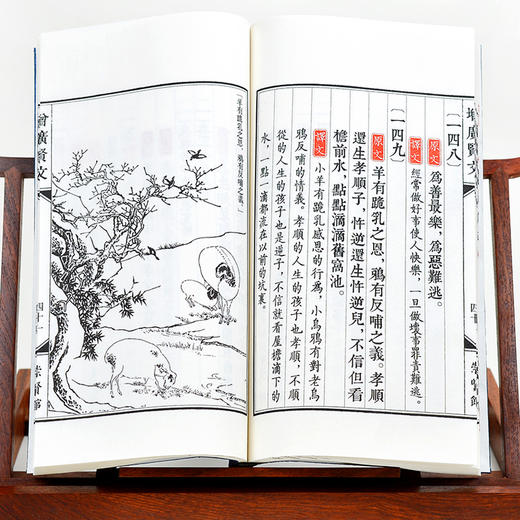 增廣賢文
四十
崇賢館
(一四八)
原文 為善最樂,為惡難逃。
譯文 經常做好事使人快樂,一旦做壞事罪責難逃。
(一四九)
原文 羊有跪乳之恩,鴉有反哺之義。孝順
還生孝順子,忤逆還生忤逆兒,不信但看
檐前水,點點滴滴舊窩池。
譯文 小羊有跪乳感恩的行為,小烏鴉有對老烏
鴉反哺的情義。孝順的人生的孩子也孝順,不順
從的人生的孩子也是逆子,不信就看屋檐滴下的
水,一點一滴都流在以前的坑裏。
羊有跪乳之恩,鴉有反哺之義。
增廣賢文
四十一
崇賢館